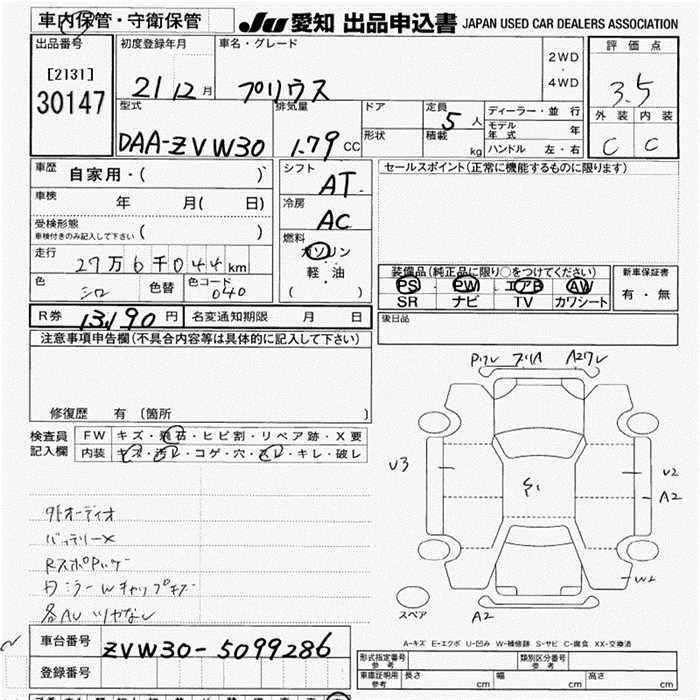 車内保管・守衛保管
JU 愛知 出品申込書 JAPAN USED CAR DEALERS ASSOCIATION
出品番号
[2131]
30147
初度登録年月
21 12 月
車名・グレード
プリウス
2WD
・
4WD
評価点
3.5
外装 内装
C C
型式
DAA-ZVW30
排気量
1.79 CC
ドア
形状
定員
5 人
積載
kg
ディーラー・並行
モデル年式 年
ハンドル 左・右
車歴
自家用・( )
車検
年 月( 日)
受検形態
車検付きのみ記入して下さい ( )
走行
27万6千044 km
色
シロ
色替
色コード
040
シフト
AT
冷房
AC
燃料
ガソリン
・
軽油
・
( )
セールスポイント(正常に機能するものに限ります)
装備品(純正品に限り○をつけてください)
PS PW エアB AW
SR ナビ TV カワシート
新車保証書
有・無
後日品
R券 13,190 円
名変通知期限 月 日
注意事項申告欄(不具合内容等は具体的に記入して下さい)
修復歴 有 〔箇所 〕
検査員
記入欄
FW キズ・飛石・ヒビ割・リペア跡・X要
内装 キズ・汚レ・コゲ・穴・スレ・キレ・破レ
外オーディオ
バッテリーX
各AW ツヤなし
A2
U3
U2
A2
W2
A2
スペア
A-キズ E-エクボ U-凹み W-補修跡 S-サビ C-腐食 XX-交換済
車台番号
ZVW30-5099286
登録番号
形式指定番号
参考
類別区分番号
参考
車庫証明用
参考
長さ cm
幅 cm
高さ cm